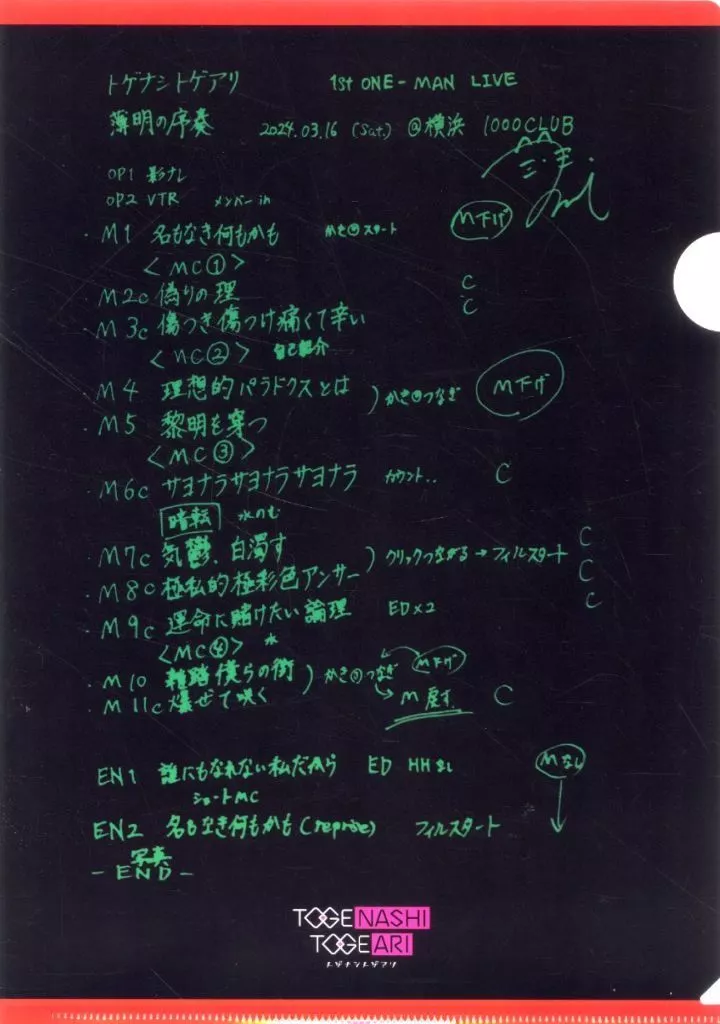 トゲナシトゲアリ 1st ONE-MAN LIVE
薄明の序奏 2024.03.16 (Sat.) @横浜 1000CLUB
OP1 影ナレ
OP2 VTR メンバー in
・M1 名もなき何もかも スタート M下げ
<MC①>
・M2c 偽りの理 C
・M3c 傷つき傷つけ痛くて辛い C
<MC②> 自己紹介
・M4 理想的パラドクスとは ) つなぎ M下げ
・M5 黎明を穿つ
<MC③>
・M6c サヨナラサヨナラサヨナラ カウント.. C
暗転 水のむ
・M7c 気鬱、白濁す ) クリックつながる→フィルスタート C
・M8c 極私的極彩色アンサー C
・M9c 運命に賭けたい論理 ED×2 C
<MC④> 水
・M10 雑踏、僕らの街 ) つなぎ M下げ
・M11c 爆ぜて咲く M戻す. C
EN1 誰にもなれない私だから ED HH Mなし
ショートMC
EN2 名もなき何もかも(reprise) フィルスタート
写真
-END-
TOGENASHI
TOGEARI
トゲナシトゲアリ